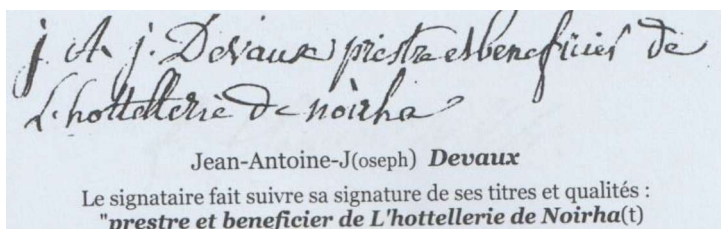 j. A. j. Devaux prestre et beneficier de
L'hottellerie de noirha
Jean-Antoine-J(oseph) Devaux
Le signataire fait suivre sa signature de ses titres et qualités :
"prestre et beneficier de L'hottellerie de Noirha(t)